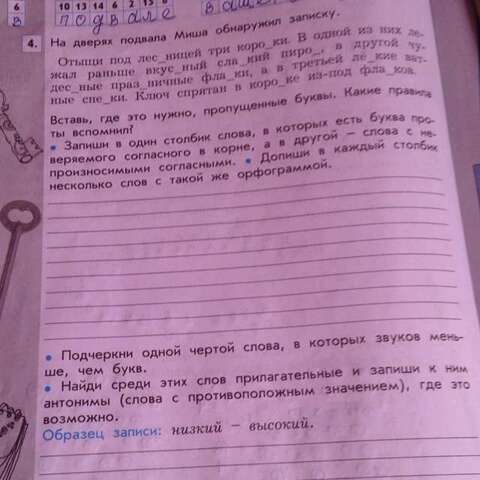 6 10 13 14 6 2 13 8
в подвале в ваш
4. На дверях подвала Миша обнаружил записку.
Отыщи под лес_ницей три коро_ки. В одной из них ле-
жал раньше вкус_ный сла_кий пиро_, в другой чу-
дес_ные праз_ничные фла_ки, а в третьей ле_кие ват-
ные сне_ки. Ключ спрятан в коро_ке из-под фла_ков.
Вставь, где это нужно, пропущенные буквы. Какие правила
ты вспомнил?
• Запиши в один столбик слова, в которых есть буква про-
веряемого согласного в корне, а в другой – слова с не-
произносимыми согласными. • Допиши в каждый столбик
несколько слов с такой же орфограммой.
• Подчеркни одной чертой слова, в которых звуков мень-
ше, чем букв.
• Найди среди этих слов прилагательные и запиши к ним
антонимы (слова с противоположным значением), где это
возможно.
Образец записи: низкий – высокий.